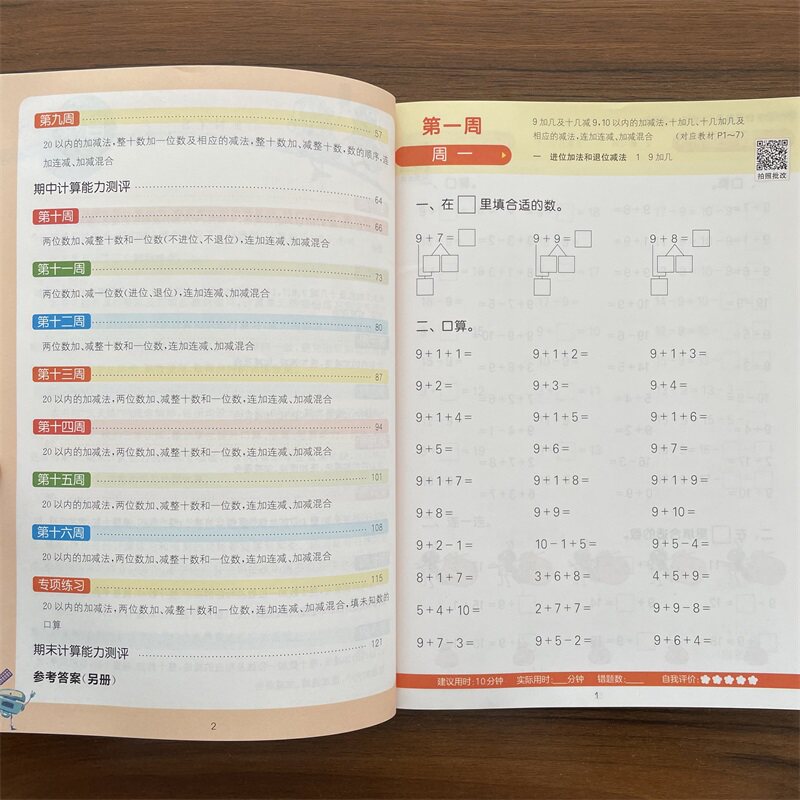 第九周 57
20 以内的加减法,整十数加一位数及相应的减法,整十数加、减整十数,数的顺序,连
加连减、加减混合
期中计算能力测评 64
第十周 66
两位数加、减整十数和一位数(不进位、不退位),连加连减、加减混合
第十一周 73
两位数加、减一位数(进位、退位),连加连减、加减混合
第十二周 80
两位数加、减整十数和一位数,连加连减、加减混合
第十三周 87
20 以内的加减法,两位数加、减整十数和一位数,连加连减、加减混合
第十四周 94
20 以内的加减法,两位数加、减整十数和一位数,连加连减、加减混合
第十五周 101
20 以内的加减法,两位数加、减整十数和一位数,连加连减、加减混合
第十六周 108
20 以内的加减法,两位数加、减整十数和一位数,连加连减、加减混合
专项练习 115
20 以内的加减法,两位数加、减整十数和一位数,连加连减、加减混合,填未知数的
口算
期末计算能力测评 121
参考答案(另册)
2
第一周
周一
9 加几及十几减 9,10 以内的加减法,十加几、十几加几及
相应的减法,连加连减、加减混合 (对应教材 P1~7)
一 进位加法和退位减法 1 9 加几
拍照批改
一、在□里填合适的数。
9+7=□ 9+9=□ 9+8=□
二、口算。
9+1+1= 9+1+2= 9+1+3=
9+2= 9+3= 9+4=
9+1+4= 9+1+5= 9+1+6=
9+5= 9+6= 9+7=
9+1+7= 9+1+8= 9+1+9=
9+8= 9+9= 9+10=
9+2-1= 10-1+5= 9+5-4=
8+1+7= 3+6+8= 4+5+9=
5+4+10= 2+7+7= 9+9-8=
9+7-3= 9+5-2= 9+6+4=
建议用时:10分钟 实际用时:___分钟 错题数:___ 自我评价:
1